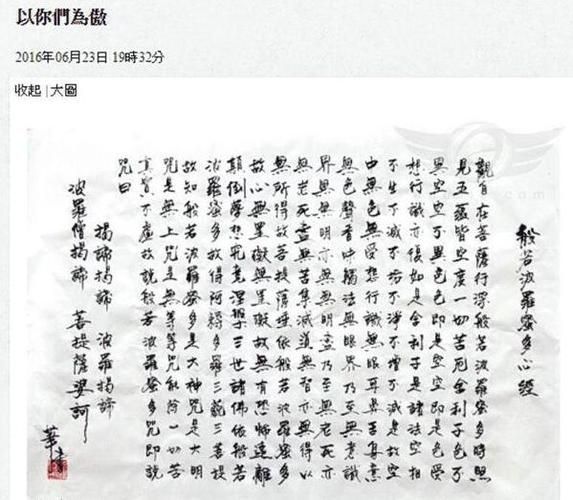 以你們為傲
2016年06月23日 19時32分
收起 | 大圖
般若波羅蜜多心經
觀自在菩薩行深般若波羅蜜多時照
見五蘊皆空度一切苦厄舍利子色不
異空空不異色色即是空空即是色受
想行識亦復如是舍利子是諸法空相
不生不滅不垢不淨不增不減是故空
中無色無受想行識無眼耳鼻舌身意
無色聲香味觸法無眼界乃至無意識
界無無明亦無無明盡乃至無老死亦
無老死盡無苦集滅道無智亦無得以
無所得故菩提薩埵依般若波羅蜜多
故心無罣礙無罣礙故無有恐怖遠離
顛倒夢想究竟涅槃三世諸佛依般若
波羅蜜多故得阿耨多羅三藐三菩提
故知般若波羅蜜多是大神咒是大明
咒是無上咒是無等等咒能除一切苦
真實不虛故說般若波羅蜜多咒即說
咒曰
揭諦揭諦 波羅揭諦
波羅僧揭諦 菩提薩婆訶
華